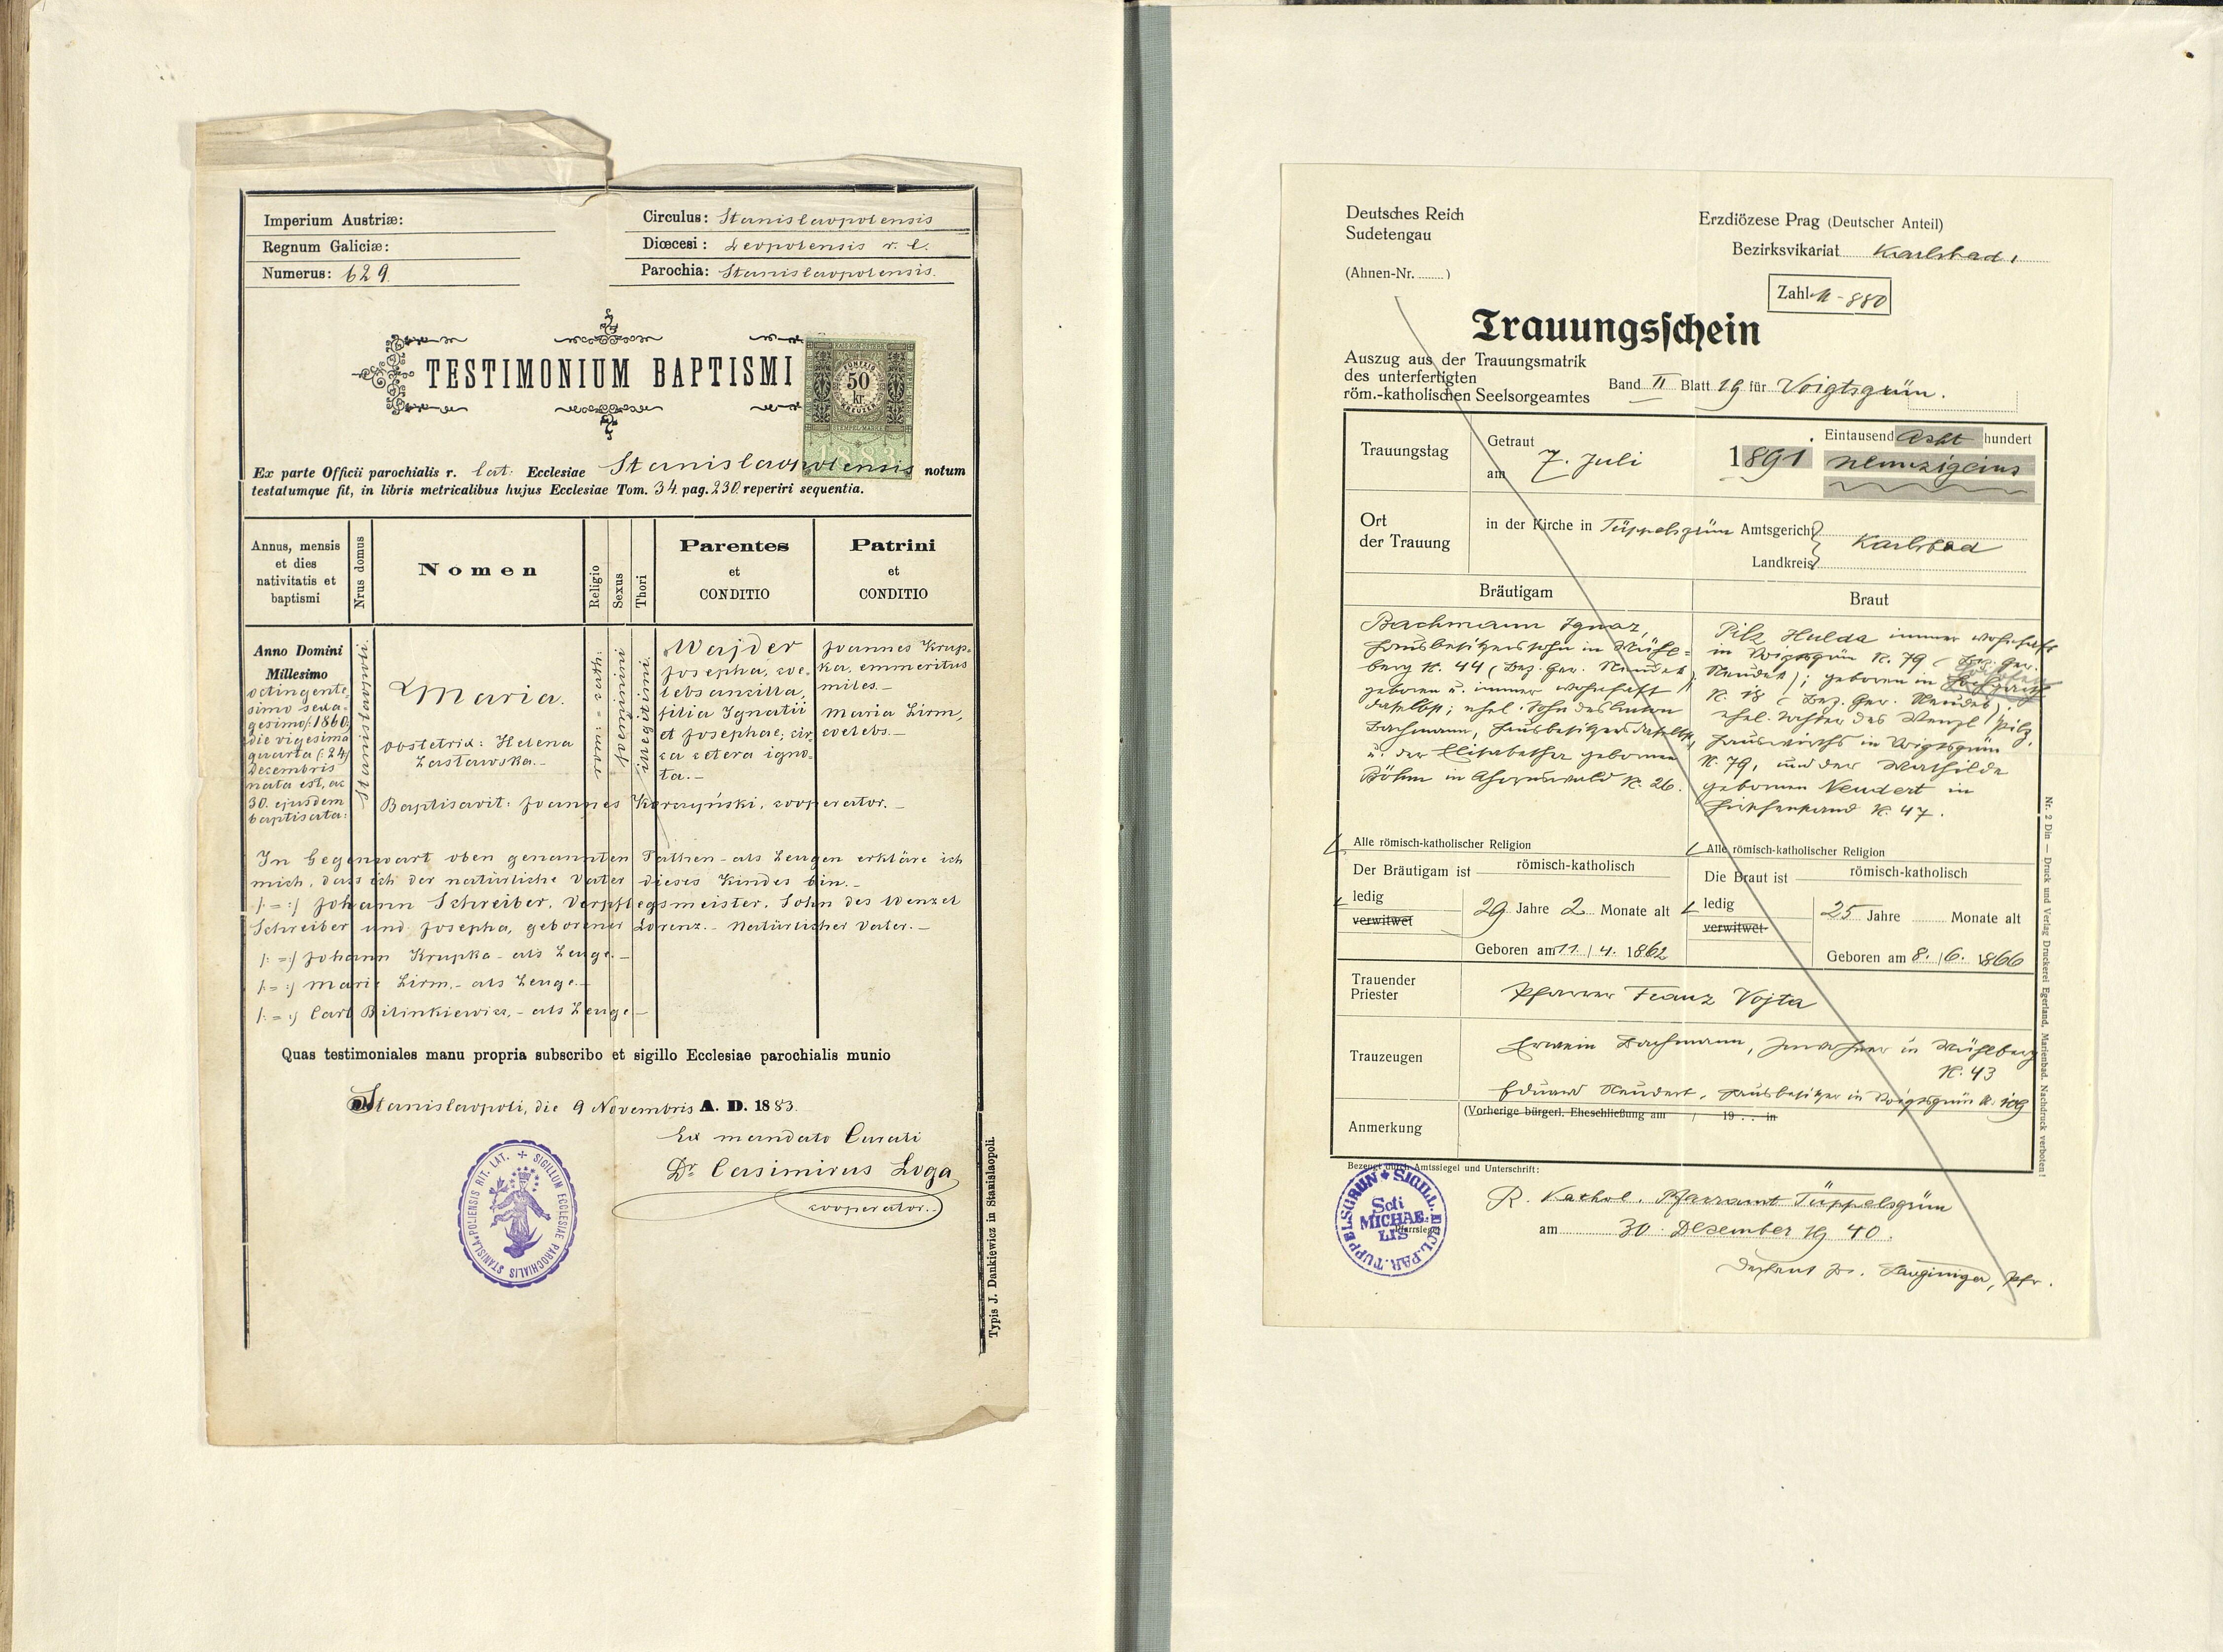 Imperium Austriæ:
Regnum Galiciæ:
Numerus: 629
Circulus: Stanislaopolensis
Diœcesi: Leopolensis r. l.
Parochia: Stanislaopolensis.
TESTIMONIUM BAPTISMI
FÜNFZIG
50
kr.
KREUZER
STEMPEL MARKE
1883
Ex parte Officii parochialis r. lat: Ecclesiae Stanislaopolensis notum
testatumque fit, in libris metricalibus hujus Ecclesiae Tom. 34. pag. 230. reperiri sequentia.
Annus, mensis
et dies
nativitatis et
baptismi
Nrus domus
Nomen
Religio
Sexus
Thori
Parentes
et
CONDITIO
Patrini
et
CONDITIO
Anno Domini
Millesimo
octingente-
simo sexa-
gesimo /:1860/
die vigesima
quarta (:24)
Decembris
nata est, ac
30. ejusdem
baptisata:
Stanislaopoli.
Maria.
obstetrix: Helena
Zastawska.-
Baptisavit: Joannes Korczyński, cooperator.-
rom: = cath:
foeminini
illegitimi.
Wajder
Josepha, coe-
lebs ancilla,
filia Ignatii
et Josephae, cir-
ca cetera igno-
ta.-
Joannes Krup-
ka, emmeritus
miles.-
Maria Lirm,
coelebs.-
In Gegenwart oben genannten Pathen - als Zeugen erkläre ich
mich, dass ich der natürliche Vater dieses Kindes bin.-
/: = :/ Johann Schreiber, Verpflegsmeister, Sohn des Wenzel
Schreiber und Josepha, geborener Lorenz.- Natürlicher Vater.-
/: = :/ Johann Krupka - als Zeuge.-
/: = :/ Marie Lirm,- als Zeuge.-
/: = :/ Carl Bilinkiewicz,- als Zeuge.-
Quas testimoniales manu propria subscribo et sigillo Ecclesiae parochialis munio
Stanislaopoli, die 9 Novembris A. D. 1883.
Ex mandato Curati
Dr. Casimirus Loga
cooperator.
SIGILLUM ECCLESIAE PAROCHIALIS STANISLAPOLIENSIS RIT. LAT.
Typis J. Dankiewicz in Stanislaopoli.
Deutsches Reich
Sudetengau
(Ahnen-Nr. ........)
Erzdiözese Prag (Deutscher Anteil)
Bezirksvikariat Karlsbad
Zahl 11 - 880
Trauungsschein
Auszug aus der Trauungsmatrik
des unterfertigten
röm.-katholischen Seelsorgeamtes
Band II Blatt 19 für Voigtsgrün.
Trauungstag
Getraut
am 7. Juli 1891
Eintausend acht hundert
neunzigeins
Ort
der Trauung
in der Kirche in Tüppelsgrün Amtsgericht
Landkreis
Karlsbad
Bräutigam
Bachmann Ignaz,
Hausbesitzerssohn in Mühl-
berg N. 44 (Bez. Ger. Neudek),
geboren u. immer wohnhaft
daselbst; ehel. Sohn des Anton
Bachmann, Hausbesitzers daselbst,
u. der Elisabetha geborenen
Böhm in Ahornswald N. 26.
Braut
Pilz Hulda immer wohnhaft
in Voigtsgrün N. 79 (Bez. Ger.
Neudek); geboren in
N. 18 (Bez. Ger. Neudek);
ehel. Tochter des Wenzl Pilz,
Hauswirths in Voigtsgrün
N. 79, und der Mathilde
geborenen Neudert in
N. 47.
Alle römisch-katholischer Religion
Der Bräutigam ist römisch-katholisch
ledig
verwitwet
29 Jahre 2 Monate alt
Geboren am 11. / 4. 1862
Alle römisch-katholischer Religion
Die Braut ist römisch-katholisch
ledig
verwitwet
25 Jahre ........ Monate alt
Geboren am 8. / 6. 1866
Trauender
Priester
Pfarrer Franz Vojta
Trauzeugen
Erwein Bachmann, Inwohner in Mühlberg
N. 43
Eduard Neudert, Hausbesitzer in Voigtsgrün N. 109
Anmerkung
(Vorherige bürgerl. Eheschließung am / 19 . . in
Bezeugt durch Amtssiegel und Unterschrift:
R. Kathol. Pfarramt Tüppelsgrün
am 30. Dezember 1940.
Pfarrsiegel
SIGILL. ECCL. PAR. TÜPPELSGRÜN
Scti
MICHAE-
LIS
Nr. 2 Din — Druck und Verlag Druckerei Egerland, Marienbad. Nachdruck verboten!